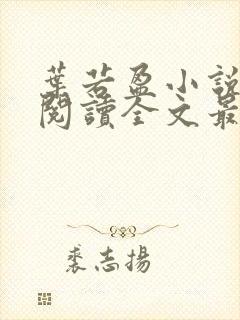 葉若盈小說
閱讀全文最
裘志揚